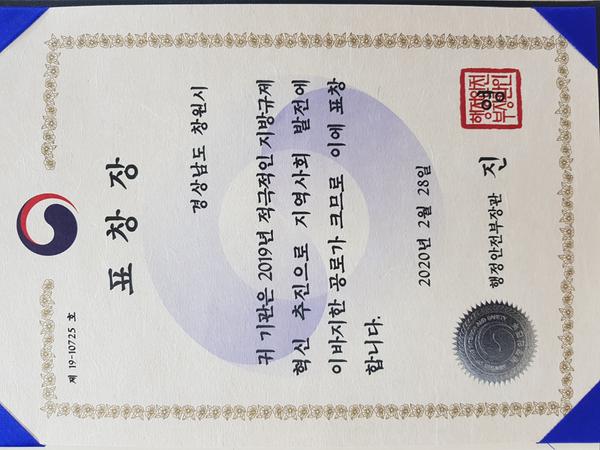 제 19-10725 호
표 창 장
경상남도 창원시
귀 기관은 2019년 적극적인 지방규제
혁신 추진으로 지역사회 발전에
이바지한 공로가 크므로 이에 표창
합니다.
2020년 2월 28일
행정안전부장관 진 영
행정안전
부장관인